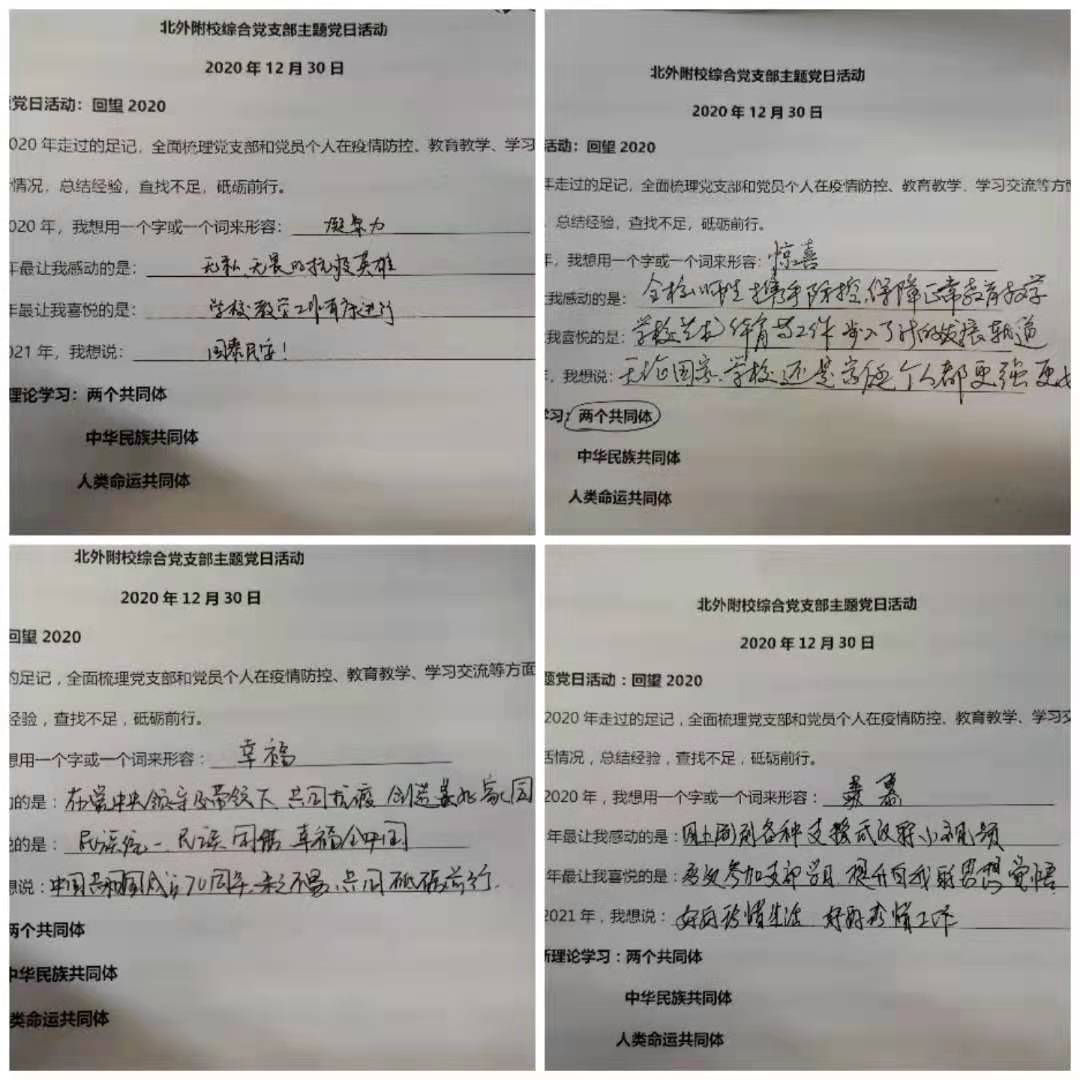 北外附校综合党支部主题党日活动
2020年12月30日
党日活动：回望2020
020年走过的足记，全面梳理党支部和党员个人在疫情防控、教育教学、学习
情况，总结经验，查找不足，砥砺前行。
020年，我想用一个字或一个词来形容：凝聚力
年最让我感动的是：无私、无畏的抗疫英雄
年最让我喜悦的是：学校教学工作有序进行
021年，我想说：国泰民安！
理论学习：两个共同体
中华民族共同体
人类命运共同体
北外附校综合党支部主题党日活动
2020年12月30日
活动：回望2020
年走过的足记，全面梳理党支部和党员个人在疫情防控、教育教学、学习交流等方面
总结经验，查找不足，砥砺前行。
年，我想用一个字或一个词来形容：惊喜
我感动的是：全校师生携手防控、保障正常教育教学
我喜悦的是：学校艺术体育等工作步入了新的发展轨道
，我想说：无论国家、学校还是家庭个人都更强更
学习：两个共同体
中华民族共同体
人类命运共同体
北外附校综合党支部主题党日活动
2020年12月30日
回望2020
的足记，全面梳理党支部和党员个人在疫情防控、教育教学、学习交流等方面
经验，查找不足，砥砺前行。
想用一个字或一个词来形容：幸福
的是：在党中央领导及带领下 共同抗疫 创造美好家园
的是：民族统一、民族团结 幸福全中国
想说：中国共和国成立70周年 来之不易 共同砥砺前行.
两个共同体
中华民族共同体
类命运共同体
北外附校综合党支部主题党日活动
2020年12月30日
题党日活动：回望2020
2020年走过的足记，全面梳理党支部和党员个人在疫情防控、教育教学、学习交
活情况，总结经验，查找不足，砥砺前行。
2020年，我想用一个字或一个词来形容：
年最让我感动的是：网上看到各种支援武汉的小视频
年最让我喜悦的是：参加支部学习 提升自我的思想觉悟
2021年，我想说：好好珍惜生活 好好珍惜工作
新理论学习：两个共同体
中华民族共同体
人类命运共同体